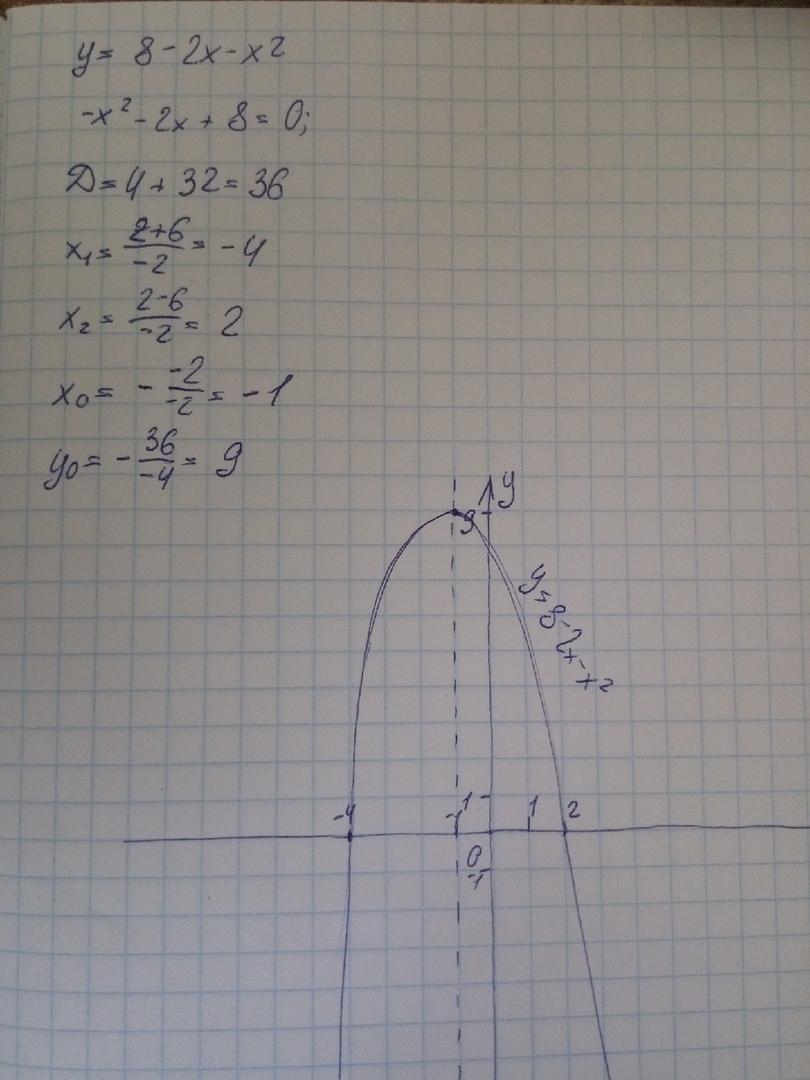 y = 8 - 2x - x²
-x² - 2x + 8 = 0;
D = 4 + 32 = 36
x₁ = (2+6)/(-2) = -4
x₂ = (2-6)/(-2) = 2
x₀ = - (-2)/(-2) = -1
y₀ = - 36/(-4) = 9
y
9
y = 8-2x-x²
-4
-1
1
1
2
0
-1